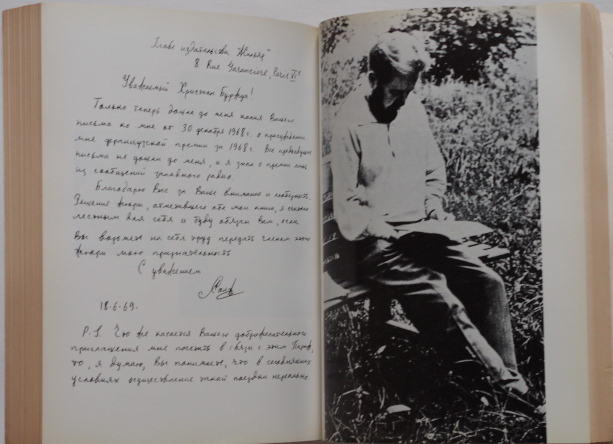 Главе издательства "Жюльяр"
8 Rue Garancière, Paris VIe
Уважаемый Кристиан Бургуа!
Только теперь дошла до меня копия Вашего
письма ко мне от 30 декабря 1968 г. о присуждении
мне французской премии за 1968 г. Все предыдущие
письма не дошли до меня, и я знал о премии лишь
из сообщений западного радио.
Благодарю Вас за Ваше внимание и любезность.
Решение жюри, отметившего обе мои книги, я считаю
лестным для себя и буду обязан Вам, если
Вы возьмёте на себя труд передать членам этого
жюри мою признательность
С уважением
18.6.69.
P.S. Что же касается Вашего доброжелательного
приглашения мне поехать в связи с этим в Париж,
то, я думаю, Вы понимаете, что в сегодняшних
условиях осуществление такой поездки нереально